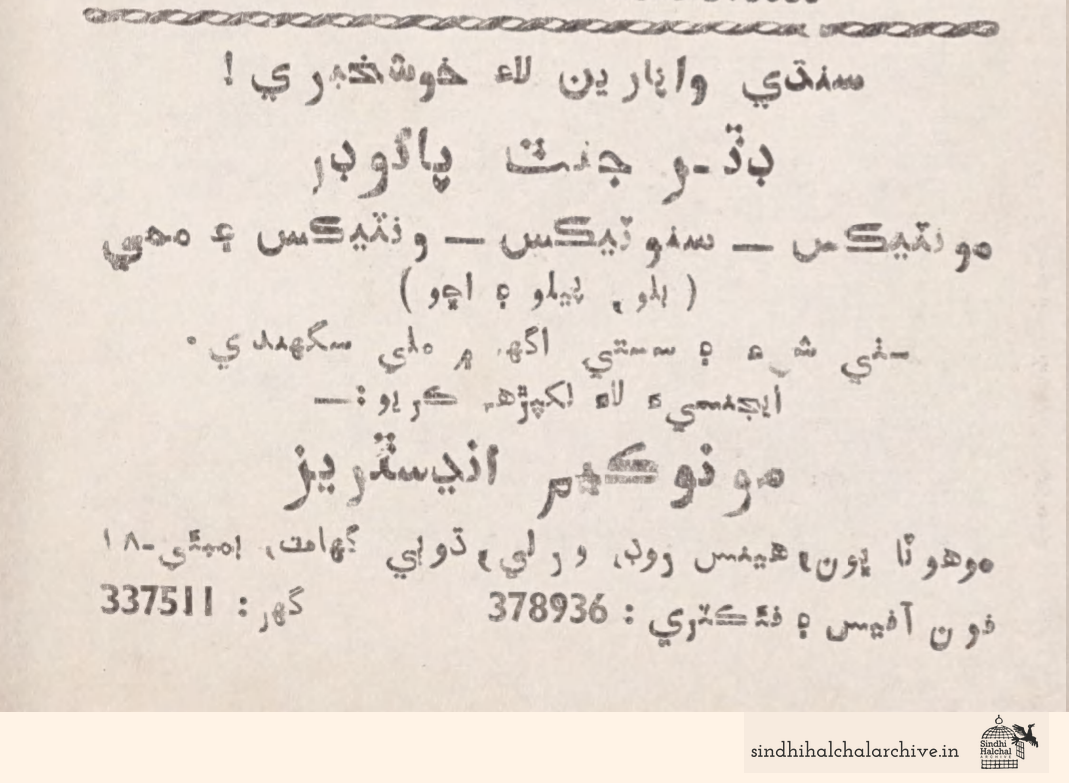 سنڌي واپارين لاءِ خوشخبري !
ڊٽرجنٽ پائوڊر
مونٽيڪس — سنوٽيڪس — ونٽيڪس ۽
( بلو، پيلو ۽ اڇو )
۽ سستي اگهہ ۾ ملي سگهندي .
ايجنسيءَ لاءِ لکپڙهہ ڪريو :—
مونوڪيم انڊسٽريز
موهوٽا ڀون، هينس روڊ، ورلي، ڌوٻي گهاٽ، بمبئي-١٨
فون آفيس ۽ فئڪٽري : 378936 گهر : 337511
sindhihalchalarchive.in
Sindhi Halchal
ARCHIVE